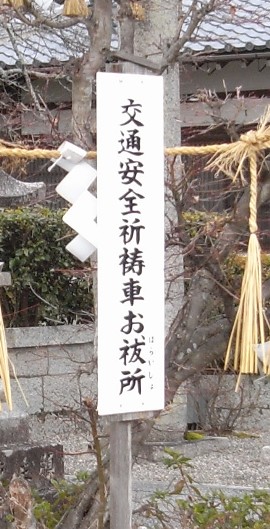 交通安全祈祷車お祓所
はらいしょ